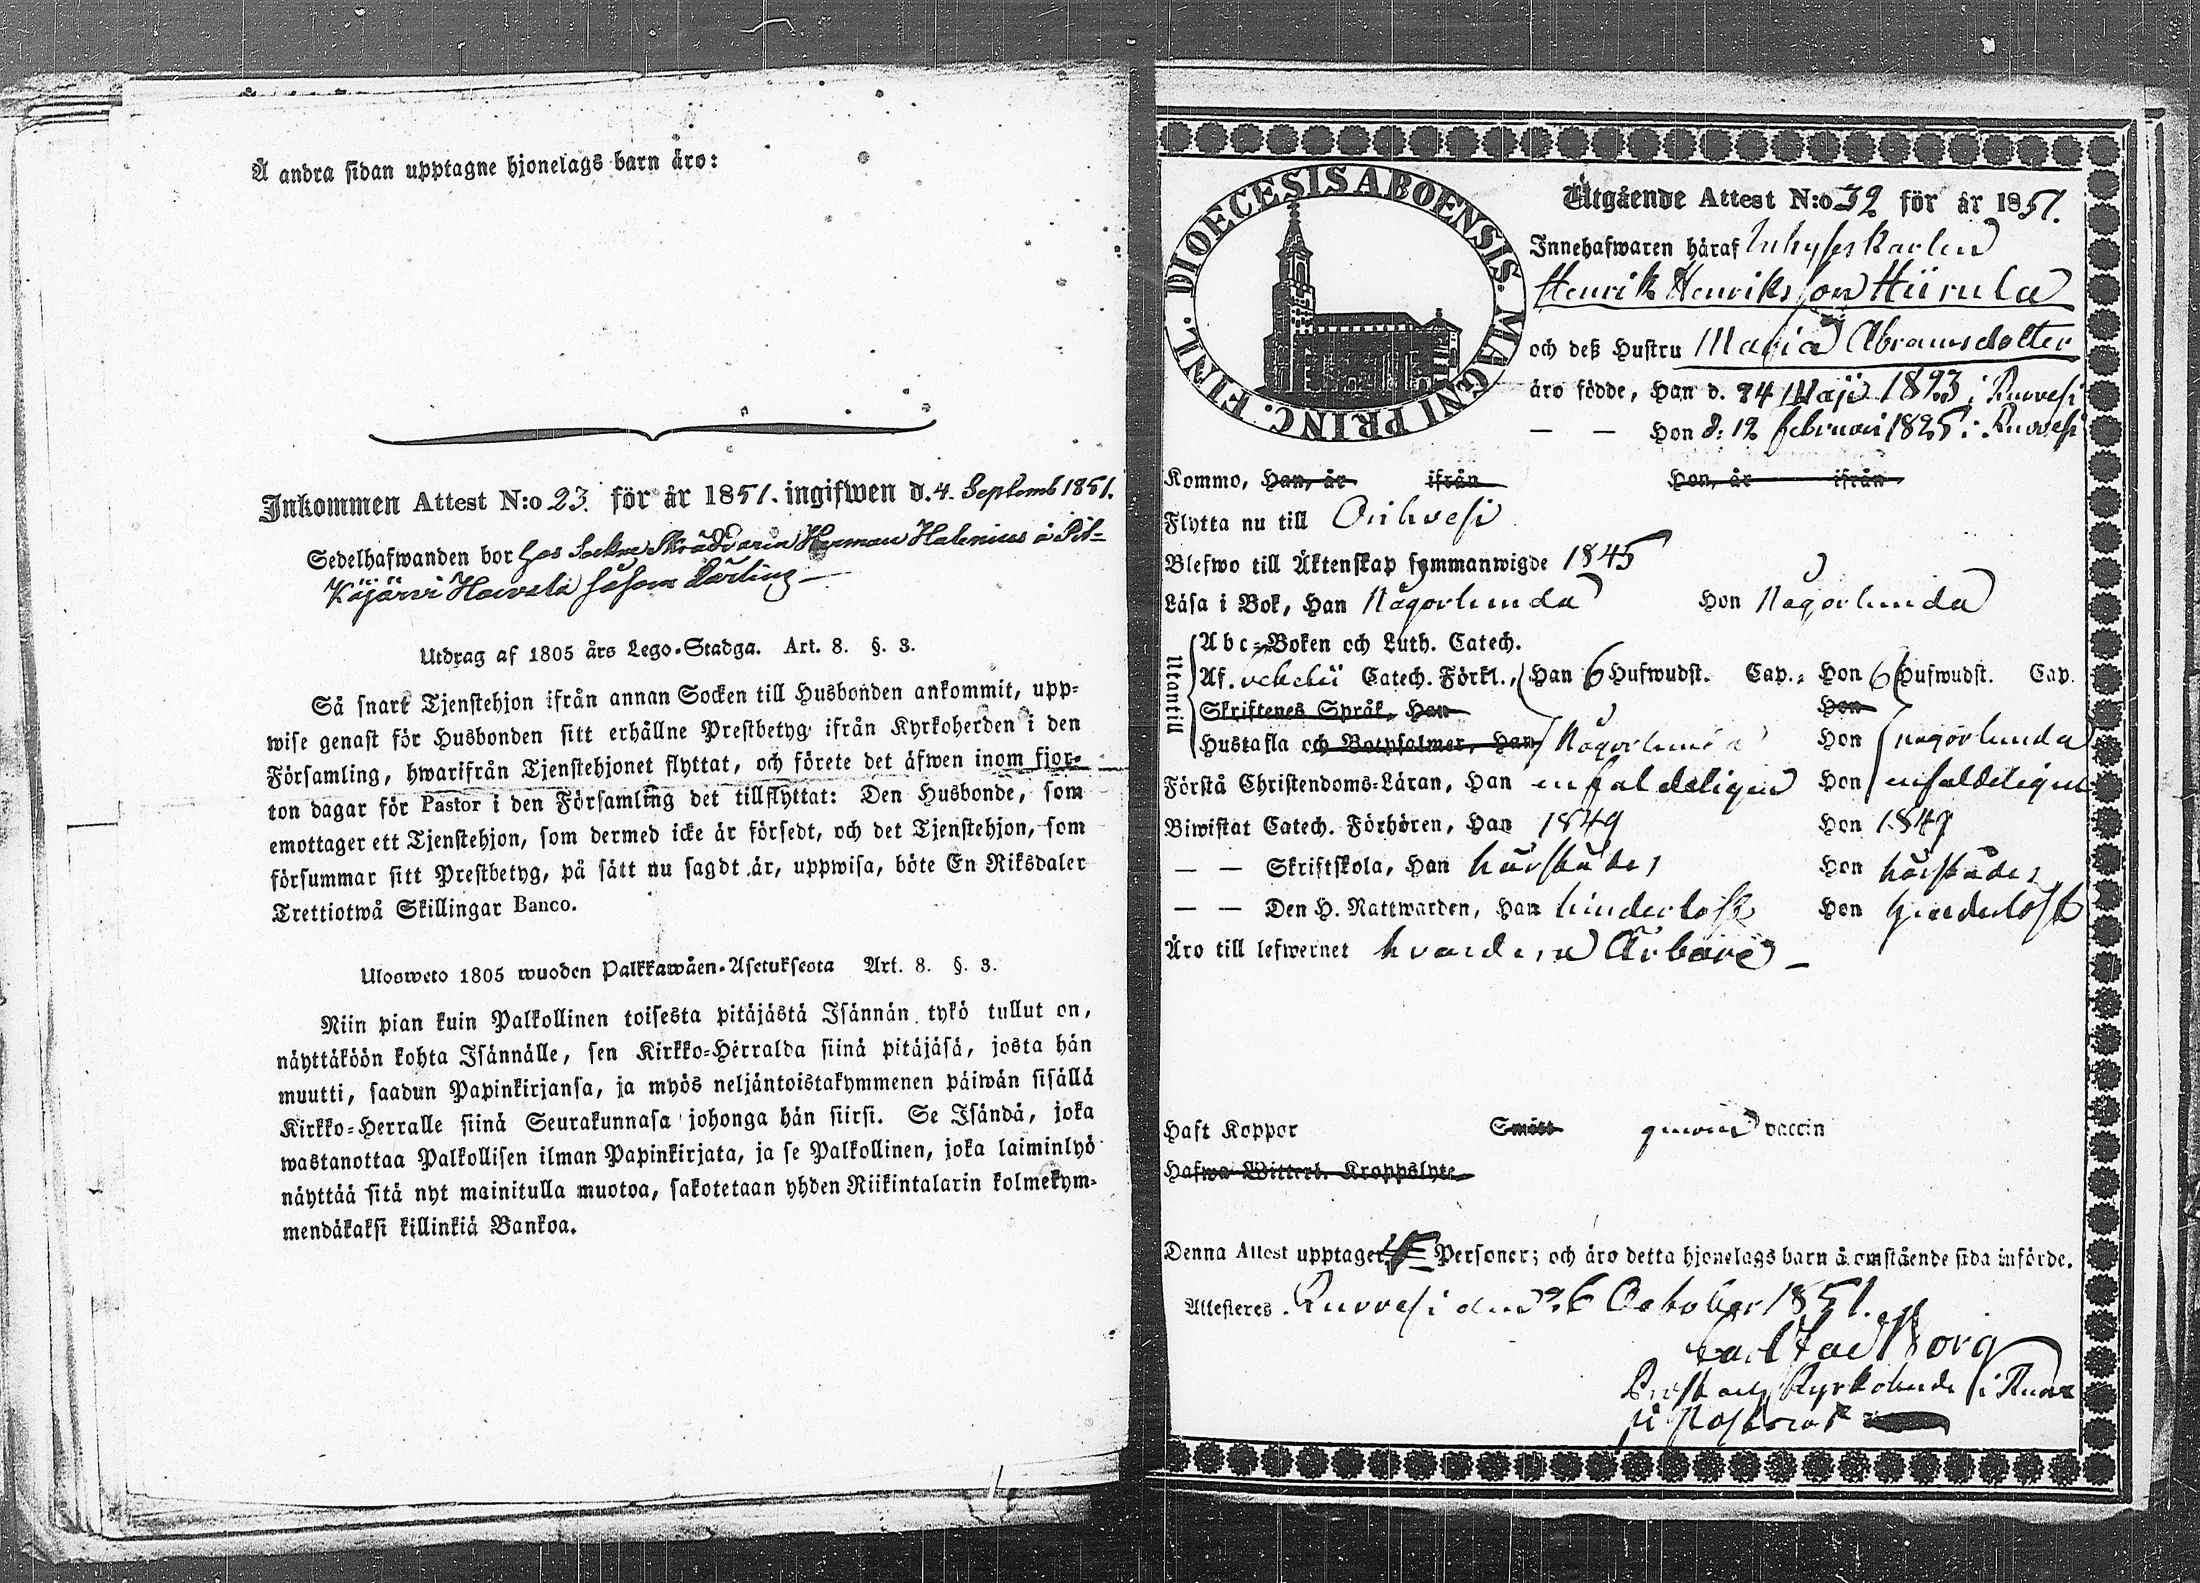 Å andra sidan upptagne hjonelags barn äro:
Inkommen Attest N:o 23. för år 1851. ingifwen d. 4. Septemb 1851.
Sedelhafwanden bor hos Sockne Skräddaren Herman Halenius å Pit-
Käjärvi Hoevela såsom Lärling
Utdrag af 1805 års Lego-Stadga. Art. 8. §. 3.
Så snart Tjenstehjon ifrån annan Socken till Husbonden ankommit, upp-
wise genast för Husbonden sitt erhållne Prestbetyg ifrån Kyrkoherden i den
Församling, hwarifrån Tjenstehjonet flyttat, och förete det äfwen inom fjor-
ton dagar för Pastor i den Församling det tillflyttat: Den Husbonde, som
emottager ett Tjenstehjon, som dermed icke är försedt, och det Tjenstehjon, som
försummar sitt Prestbetyg, på sätt nu sagdt är, uppwisa, böte En Riksdaler
Trettiotwå Skillingar Banco.
Ulosweto 1805 wuoden Palkkawäen-Asetuksesta Art. 8. §. 3.
Niin pian kuin Palkollinen toisesta pitäjästä Isännän tykö tullut on,
näyttäköön kohta Isännälle, sen Kirkko-Herralda siinä pitäjäsä, josta hän
muutti, saadun Papinkirjansa, ja myös neljäntoistakymmenen päiwän sisällä
Kirkko-Herralle siinä Seurakunnasa johonga hän siirsi. Se Isändä, joka
wastanottaa Palkollisen ilman Papinkirjata, ja se Palkollinen, joka laiminlyö
näyttää sitä nyt mainitulla muotoa, sakotetaan yhden Riikintalarin kolmekym-
mendäkaksi killinkiä Bankoa.
DIOECESIS ABOENSIS. MAGNI PRINC. FINL.
Utgående Attest N:o 32 för år 1851.
Innehafwaren häraf Inhyseskarlen
Henrik Henriksson Hiirula
och deß Hustru Maria Abramsdotter
äro födde, Han d. 24 Maji 1823 i Ruovesi
— — Hon d: 12 februari 1825 i Ruovesi
Kommo, Han, år ifrån Hon, år ifrån
Flytta nu till Orihvesi
Blefwo till Äktenskap sammanwigde 1845
Läsa i Bok, Han Någorlunda Hon Någorlunda
Utantill
Abc-Boken och Luth. Catech.
Af Catech. Förkl., Han 6 Hufwudst. Cap., Hon 6 Hufwudst. Cap.
Skriftenes Språk, Han Hon
Hustafla och Botpsalmer, Han Någorlunda Hon någorlunda
Förstå Christendoms-Läran, Han enfaldeligen Hon enfaldeligen
Biwistat Catech. Förhören, Han 1849 Hon 1849
— — Skriftskola, Han härstädes Hon härstädes
— — Den H. Nattwarden, Han hinderlöst Hon hinderlöst
Äro till lefwernet hvardera Ärbare
Haft Koppor Smitt genom vaccin
Hafwa Witterl. Kroppslyte
Denna Attest upptager Personer; och äro detta hjonelags barn å omstående sida införde.
Attesteres Ruovesi den 26 October 1851.
Carl Stadborg
Prost och Kyrkoherde i Ruove